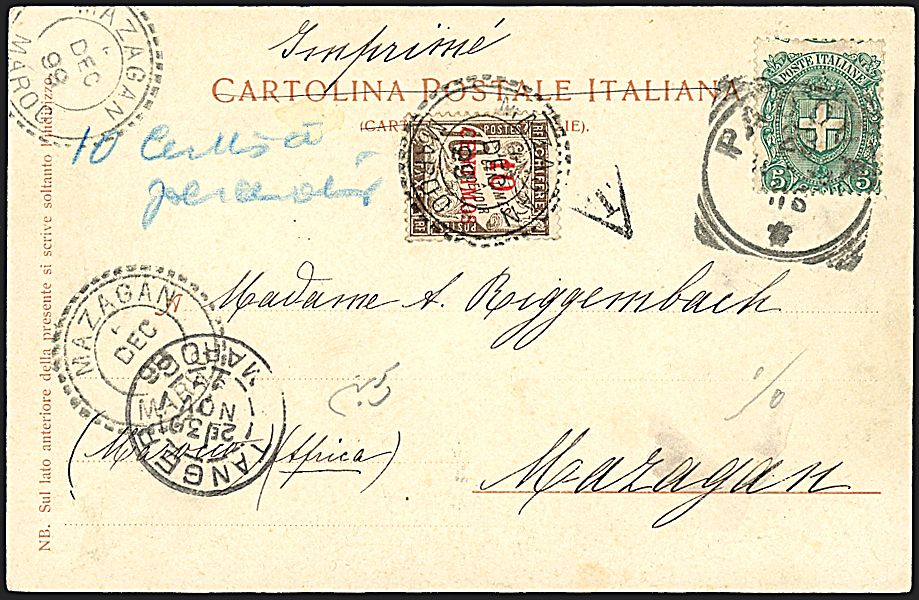 Imprimé
CARTOLINA POSTALE ITALIANA
(CARTE IE).
10 Centos a
MAZAGAN
DEC
99
MAROC
POSTES
CHIFFRE
10
CENTIMOS
DEC
99
MAROC
POSTES
T
POSTE ITALIANE
5 5
P
Madame A. Riggembach
MAZAGAN
DEC
TANGER
MAROC
NOV
99
(Maroc) (Africa)
Mazagan
NB. Sul lato anteriore della presente si scrive soltanto l'indirizzo.